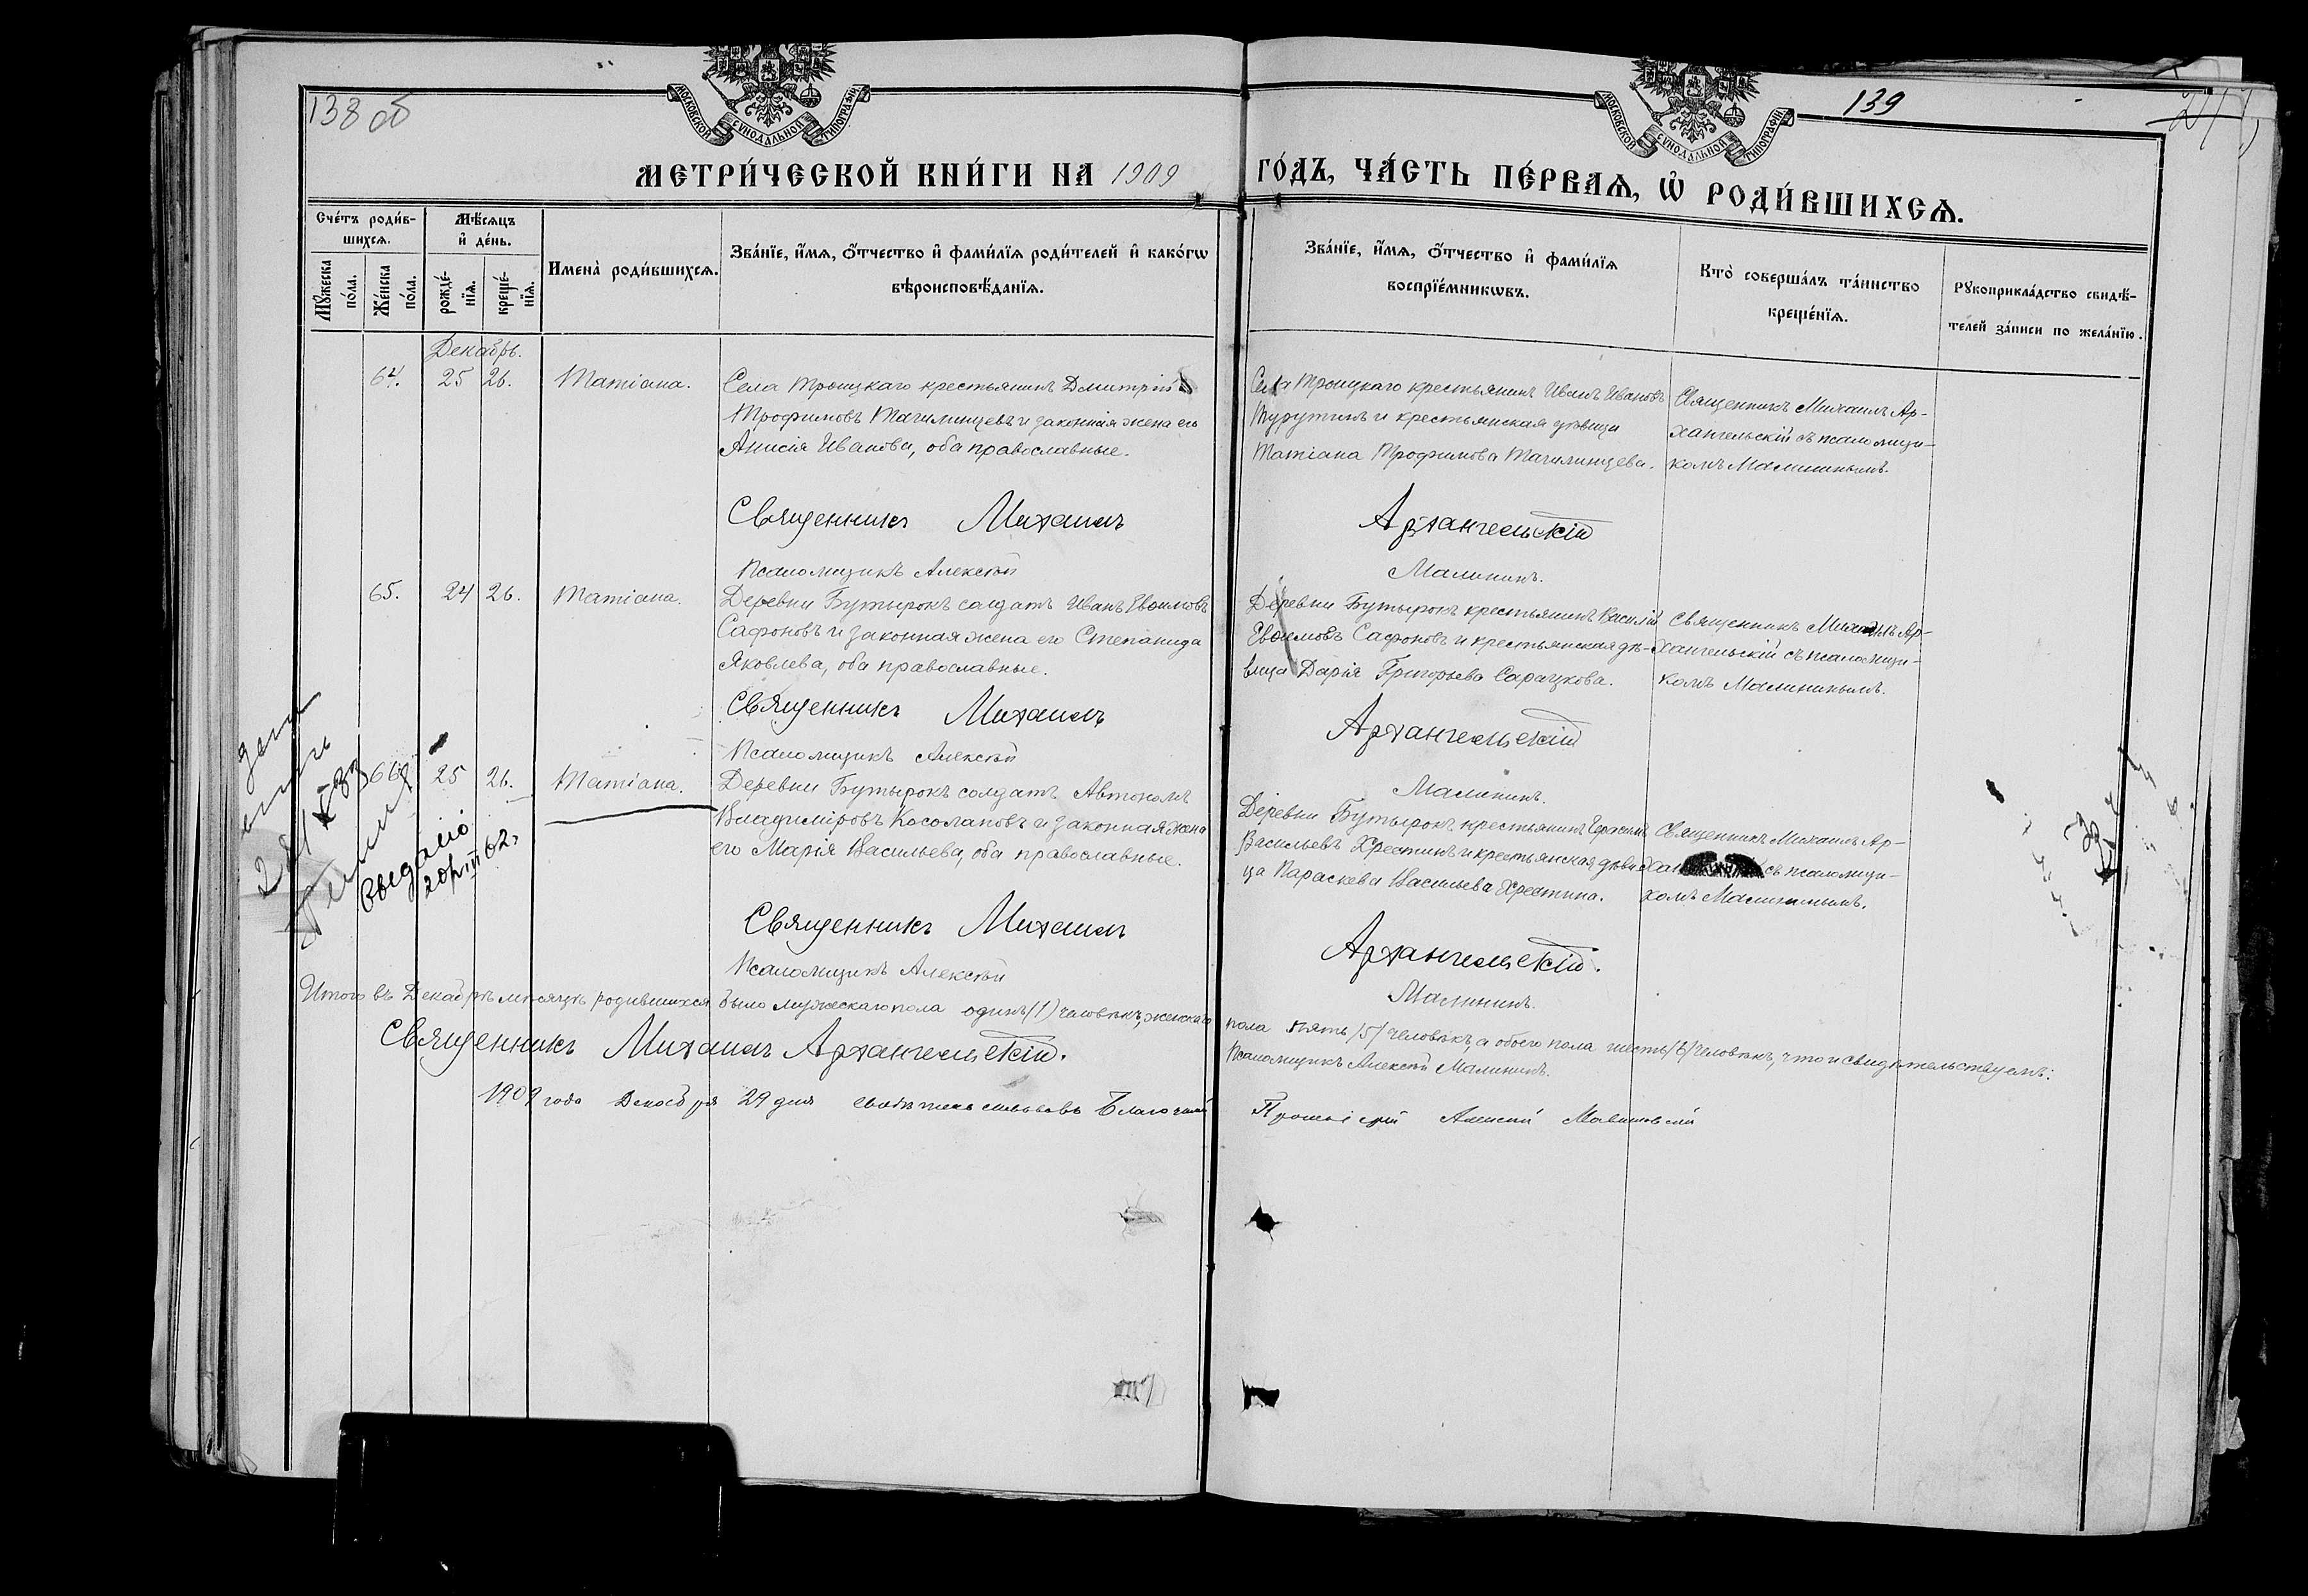 138 об
139
МОСКОВСКОЙ СѴНОДАЛЬНОЙ ТИПОГРАФІИ
МОСКОВСКОЙ СѴНОДАЛЬНОЙ ТИПОГРАФІИ
МЕТРИ́ЧЕСКОЙ КНИ́ГИ НА 1909
ГО́ДЪ, ЧА́СТЬ ПЕ́РВАѦ, Ѡ҆ РОДИ́ВШИХСѦ.
Сче́тъ роди́в-
шихсѧ.
Мꙋ́жеска
по́ла.
Же́нска
по́ла.
Мѣ́сѧцъ
и҆ де́нь.
рожде́-
нїѧ.
креще́-
нїѧ.
Имена̀ роди́вшихсѧ.
Зва́нїе, и҆́мѧ, ѻ҆́тчество и҆ фами́лїѧ роди́телей и҆ како́гѡ
вѣроисповѣ́данїѧ.
Зва́нїе, и҆́мѧ, ѻ҆́тчество и҆ фами́лїѧ
воспрїе́мникѡвъ.
Кто̀ соверша́лъ та́инство
креще́нїѧ.
Рꙋкоприкла́дство свидѣ́-
телей за́писи по жела́нїю.
Декабрь.
64. 25 26. Татіана.
Села Троицкаго крестьянинъ Дмитрій
Трофимовъ Тагилинцевъ и законная жена его
Анисія Иванова, оба православные.
Села Троицкаго крестьянинъ Иванъ Ивановъ
Турутинъ и крестьянская дѣвица
Татіана Трофимова Тагилинцева.
Священникъ Михаилъ Ар-
хангельскій съ псаломщи-
комъ Малининымъ.
Священникъ Михаилъ Архангельскій
Псаломщикъ Алексѣй Малининъ.
65. 24 26. Татіана.
Деревни Бутырокъ солдатъ Иванъ Евѳимовъ
Сафоновъ и законная жена его Степанида
Яковлева, оба православные.
Деревни Бутырокъ крестьянинъ Василій
Евѳимовъ Сафоновъ и крестьянская дѣ-
вица Дарія Григорьева Сарацкова.
Священникъ Михаилъ Ар-
хангельскій съ псаломщи-
комъ Малининымъ.
Священникъ Михаилъ Архангельскій
Псаломщикъ Алексѣй Малининъ.
66. 25 26. Татіана.
Деревни Бутырокъ солдатъ Автономъ
Владиміровъ Косолаповъ и законная жена
его Марія Васильева, оба православные.
Деревни Бутырокъ крестьянинъ Герасимъ
Васильевъ Хрестинъ и крестьянская дѣви
ца Параскева Васильева Хрестина.
Священникъ Михаилъ Ар-
хан съ псаломщи-
комъ Малининымъ.
Выдано
20/III 62.
Священникъ Михаилъ Архангельскій.
Псаломщикъ Алексѣй Малининъ.
Итого въ Декабрѣ мѣсяцѣ родившихся было мужескаго пола одинъ (1) человѣкъ, женскаго пола пять /5/ человѣкъ, а обоего пола шесть /6/ человѣкъ, что и свидѣтельствуемъ:
Священникъ Михаилъ Архангельскій.
Псаломщикъ Алексѣй Малининъ.
1909 года Декабря 29 дня свидѣтельствовалъ Благочинный Протоіерей Алексѣй